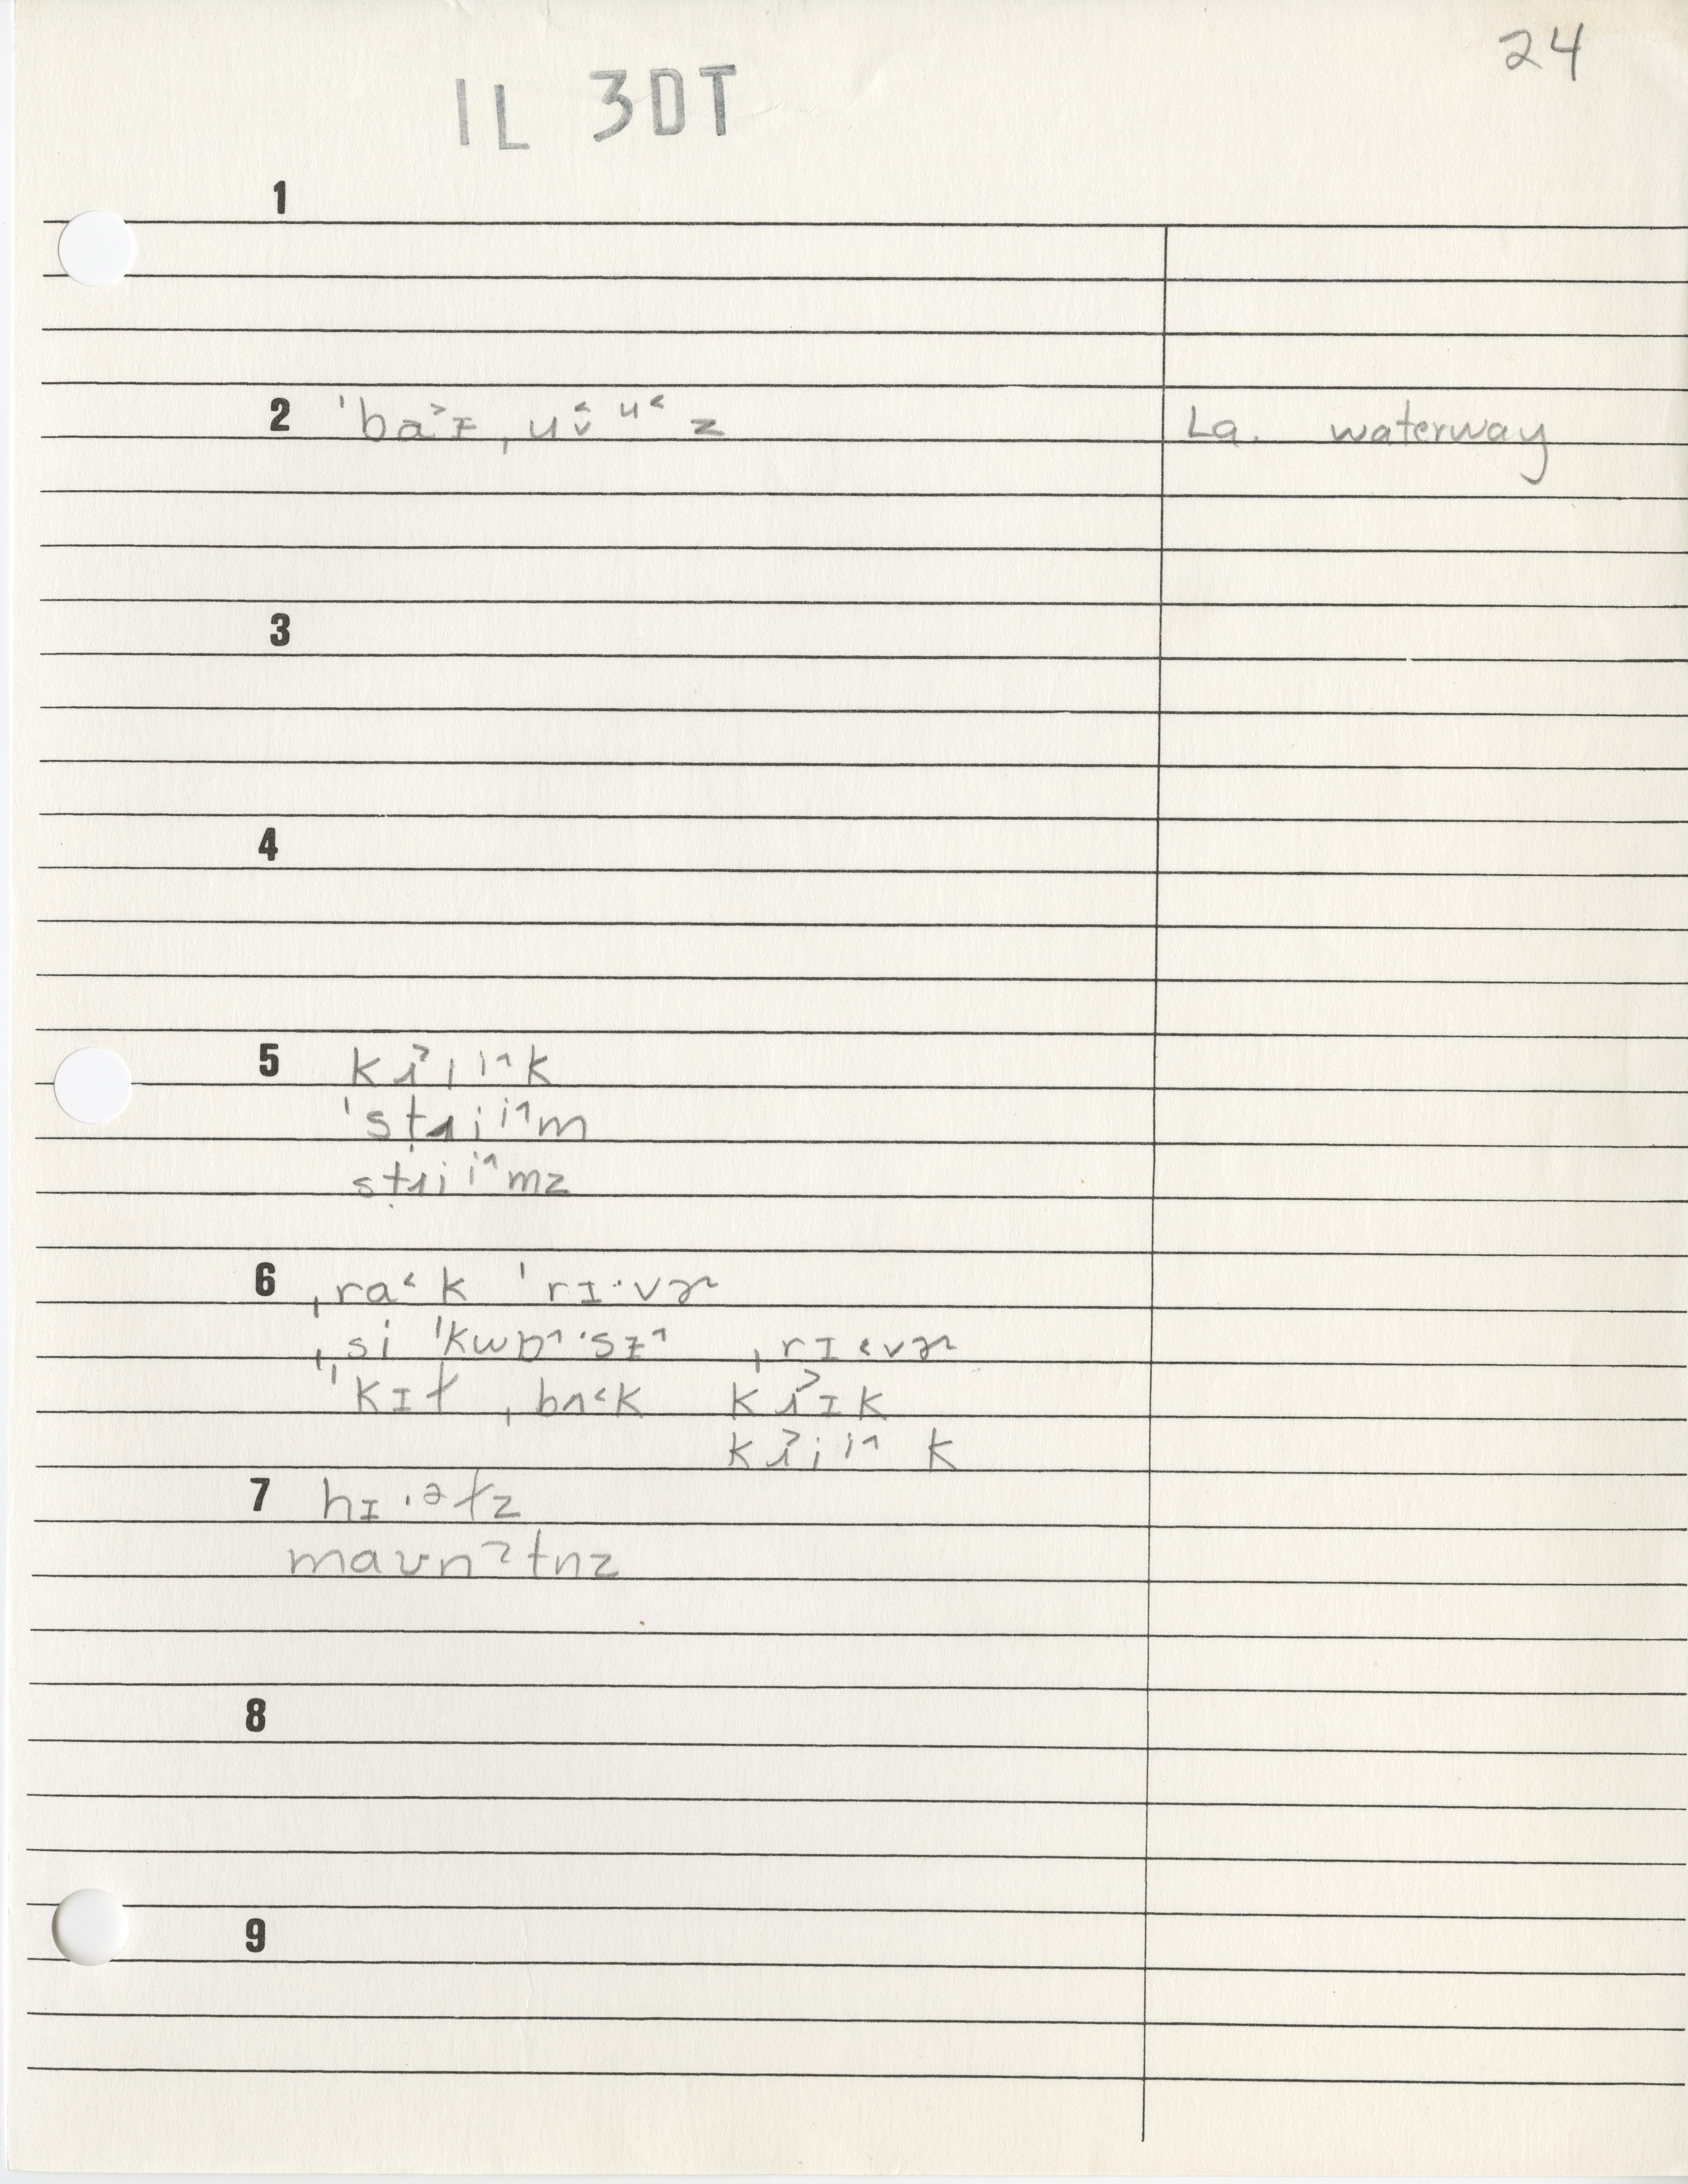 24
IL 3DT
1
2 ˈba˃ɪ̵ˌuʉ̬˂ᵘ˂z La. waterway
3
4
5 kɹ˃i̩ⁱ˄k
ˈstɹi̩ⁱ˄m
stɹi̩ⁱ˄mz
6 ˌra˂k ˈrɪ·vɚ
ˌsi ˈkwɒ˄·sɪ̵˄ ˌrɪ˂vɚ
ˈˈkɪt ˌbʌ˂k kɹ˃ɪk
kɹ˃i̩ⁱ˄ k
7 hɪ·ᵊɫz
maʊnʔtnz
8
9